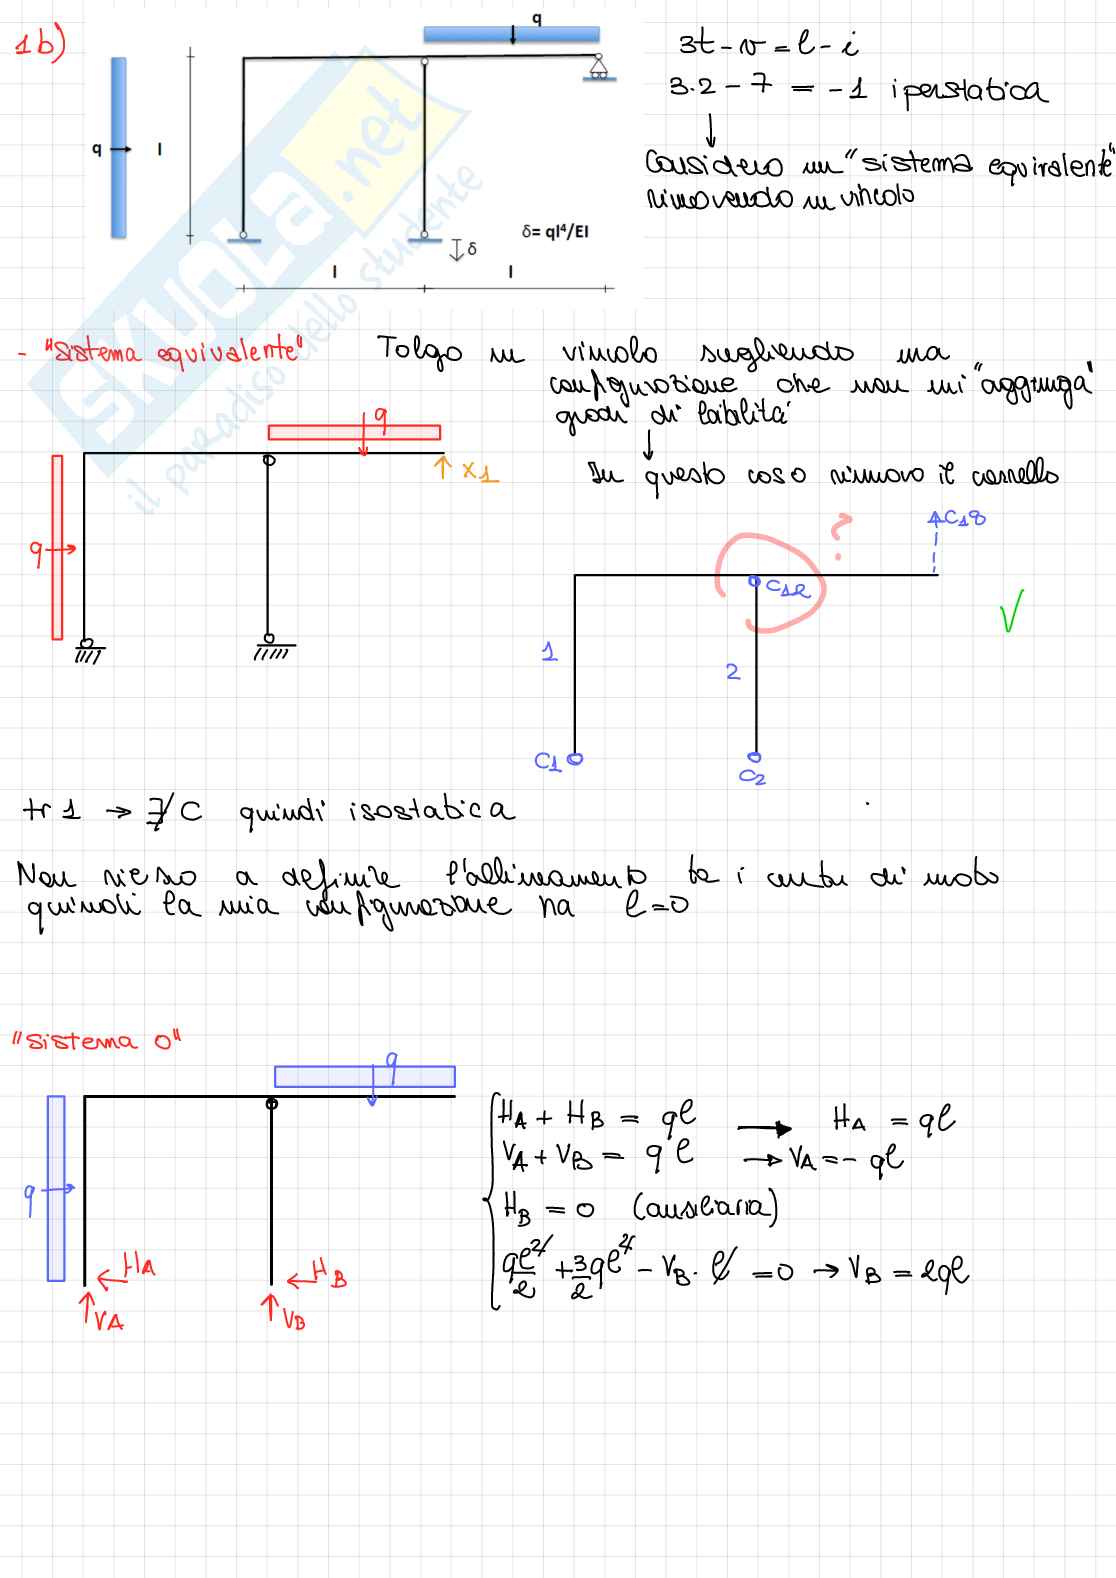 1b)
q
q
l
δ= ql⁴/EI
δ
l
l
3t - v = l - i
3·2 - 7 = -1 iperstatica
Considero un "sistema equivalente"
rimovendo un vincolo
SKUOLA.net
il paradiso dello studente
- "Sistema equivalente"
Tolgo un vincolo scegliendo una
configurazione che non mi "aggiunga"
gradi di labilità
In questo caso rimuovo il carrello
q
q
X1
?
C1R
1
2
C1
C2
tr 1 → ∄ C quindi isostatica
Non riesco a definire l'allineamento tra i centri di moto
quindi la mia configurazione ha l=0
"Sistema 0"
q
q
HA
VA
HB
VB
HA + HB = ql → HA = ql
VA + VB = ql → VA = - ql
HB = 0 (ausiliaria)
ql²/2 + 3/2 ql² - VB · l = 0 → VB = 2ql